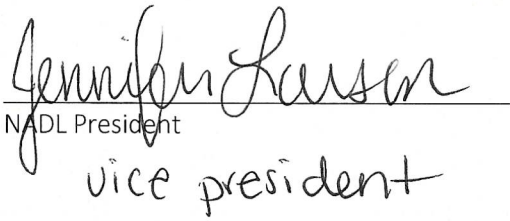 Jennifer Larsen
NADL President
vice president